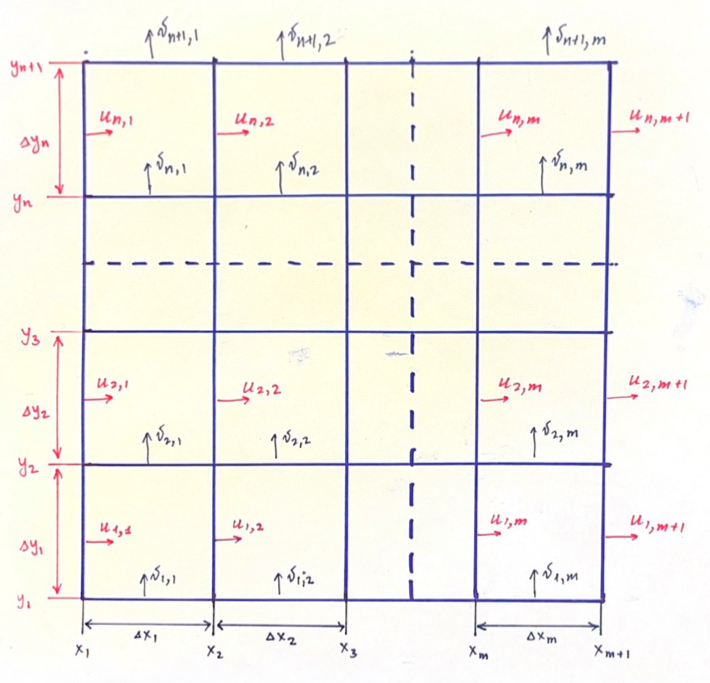 𝑣n+1,1 𝑣n+1,2 𝑣n+1,m
yn+1
un,1 un,2 un,m un,m+1
Δyn
𝑣n,1 𝑣n,2 𝑣n,m
yn
y3
u2,1 u2,2 u2,m u2,m+1
Δy2
𝑣2,1 𝑣2,2 𝑣2,m
y2
u1,1 u1,2 u1,m u1,m+1
Δy1
𝑣1,1 𝑣1,2 𝑣1,m
y1
Δx1 Δx2 Δxm
x1 x2 x3 xm xm+1